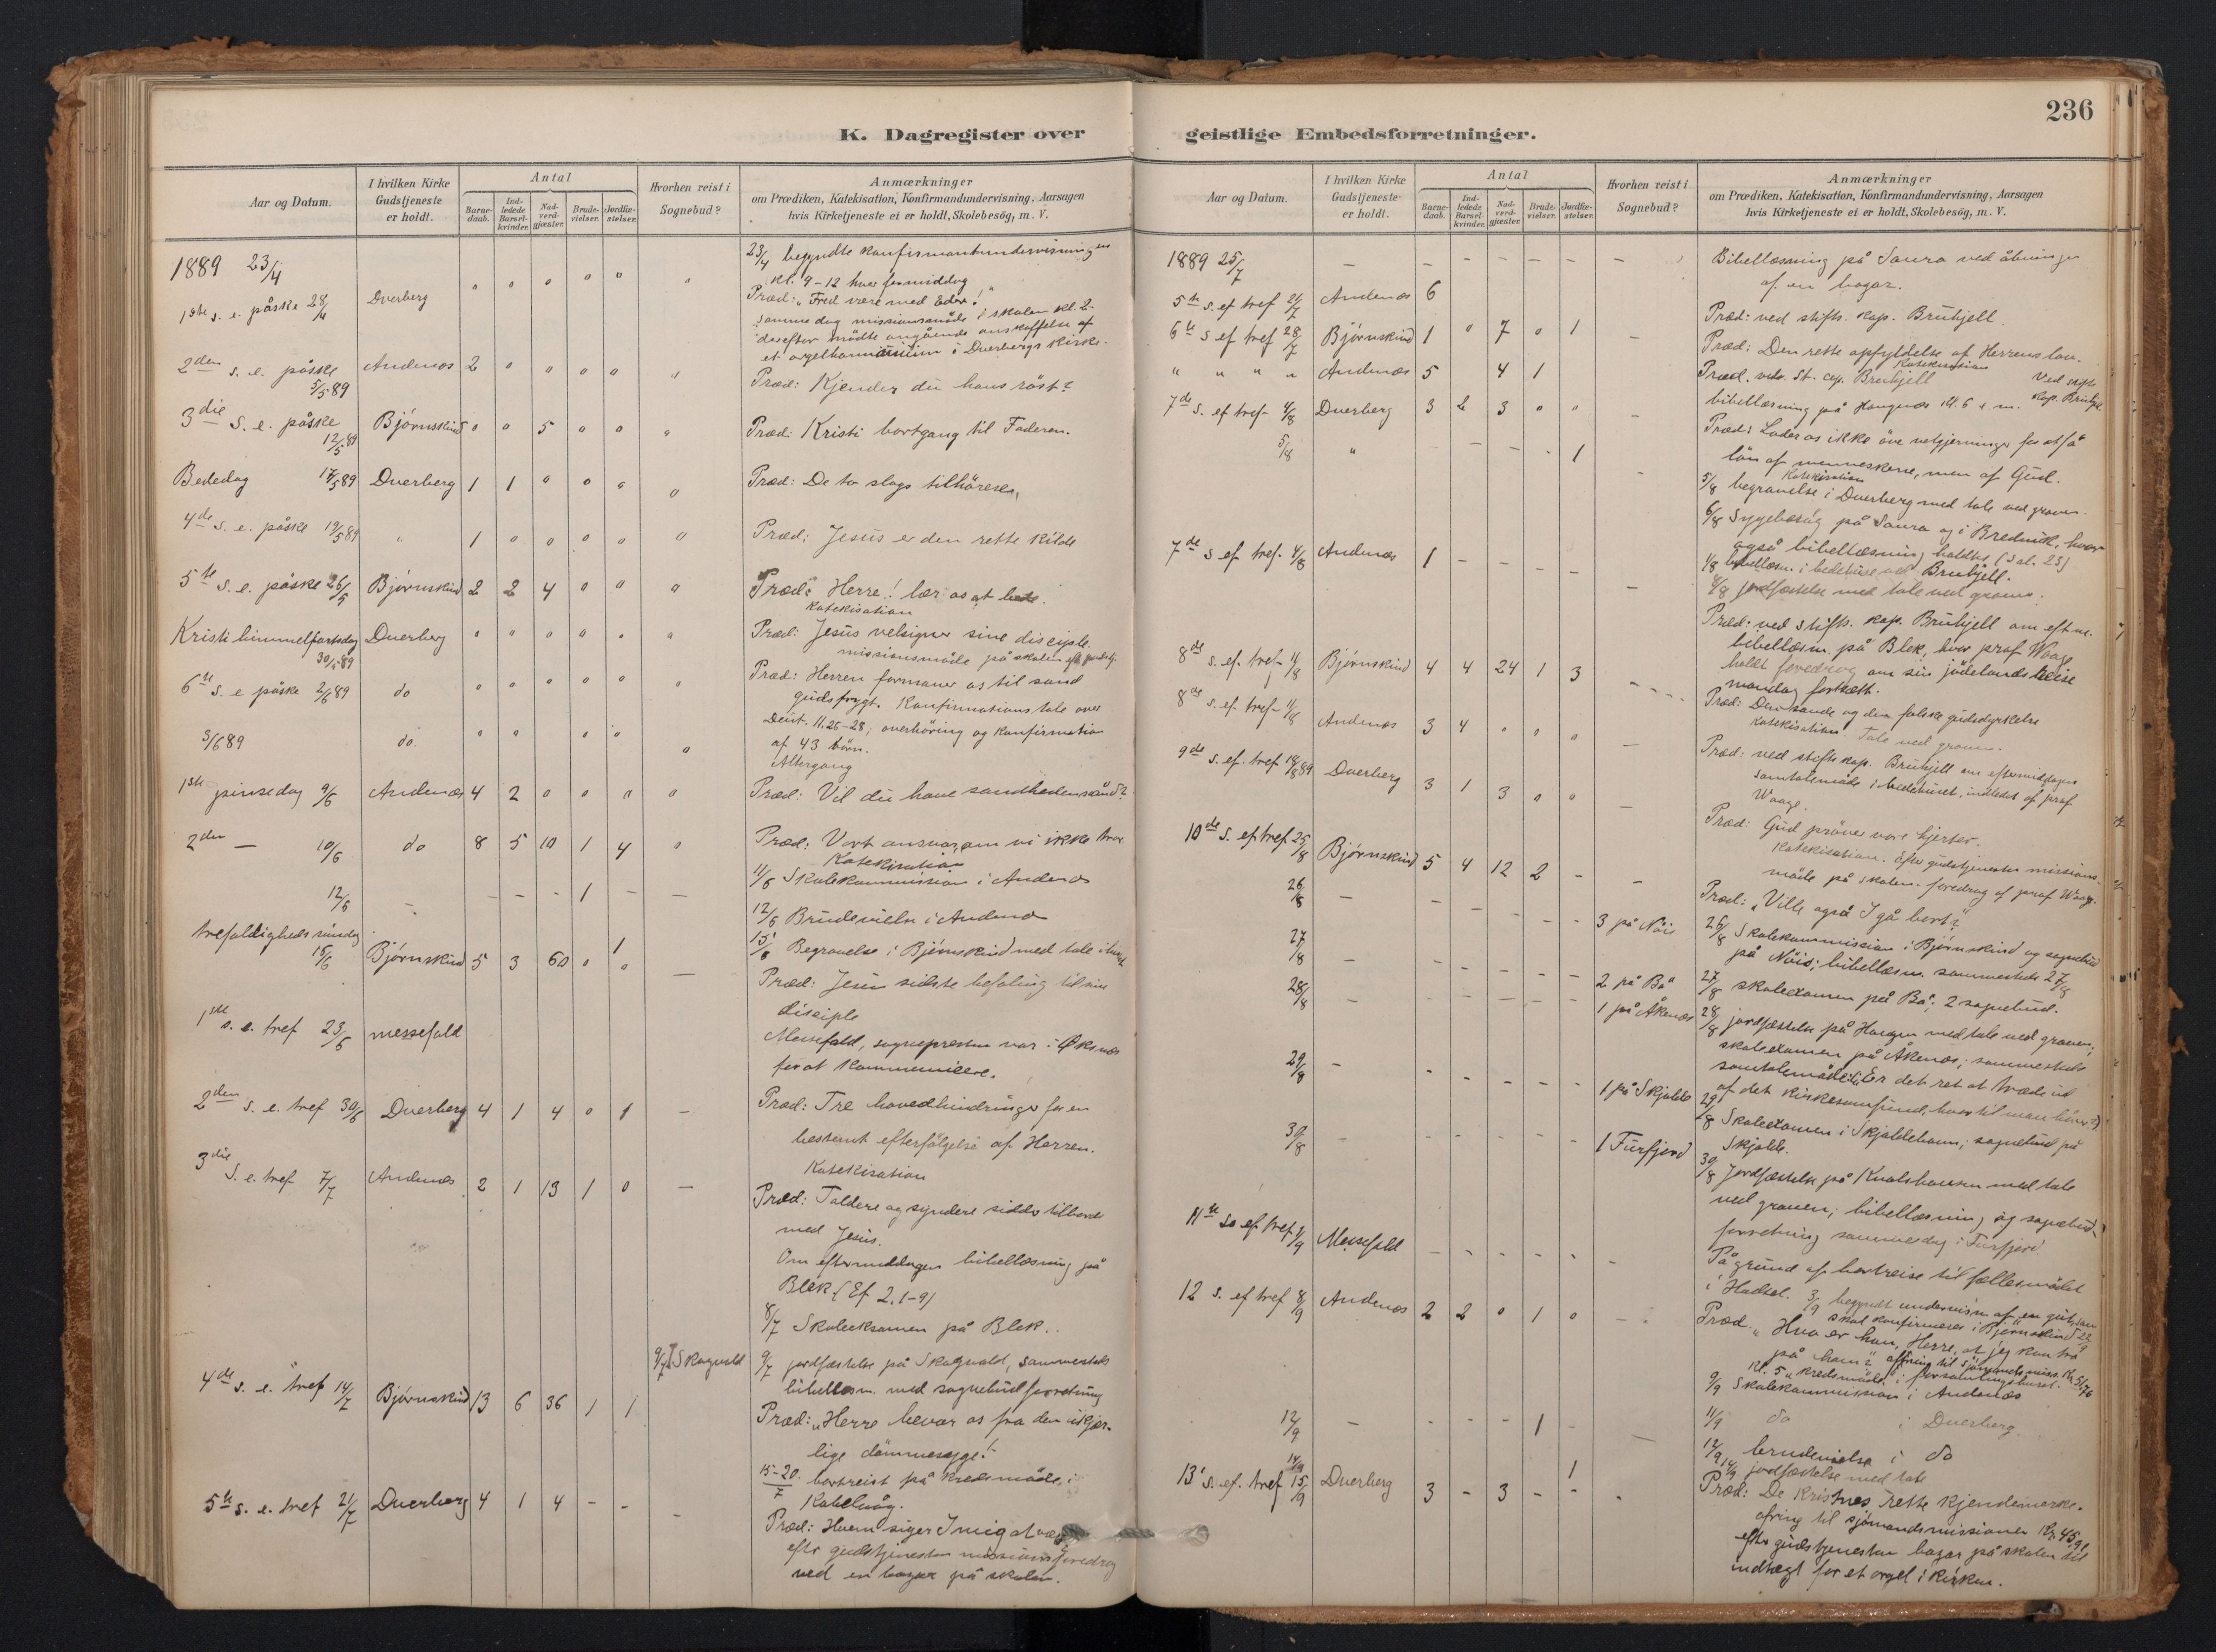 236
K. Dagregister over geistlige Embedsforretninger.
Aar og Datum.
I hvilken Kirke Gudstjeneste er holdt.
Antal
Barnedaab.
Indledede Barselkvinder.
Nadverdgjæster.
Brudevielser.
Jordfæstelser.
Hvorhen reist i Sognebud?
Anmærkninger
om Prædiken, Katekisation, Konfirmandundervisning, Aarsagen
hvis Kirketjeneste ei er holdt, Skolebesög, m. V.
1889 23/4
23/4 begyndte konfirmantundervisningen
kl. 9-12 hver formiddag
1ste s. e. påske 28/4 Dverberg " " " " " "
Præd: "Fred være med Eder!"
samme dag missionsmöde i skolen kl. 2
derefter mödte angående anskaffelse af
et orgelharmonium i Dverbergs kirke.
2den s. e. påske 5/5 89 Andenæs 2 " " " " "
Præd: Kjender du hans röst?
3die s. e. påske 12/5 89 Bjørnskind " " 5 " " "
Præd: Kristi bortgang til Faderen.
Bededag 17/5 89 Dverberg 1 1 " " " "
Præd: De to slags tilhörere.
4de s. e. påske 19/5 89 " 1 " " " " "
Præd: Jesus er den rette kilde
5te s. e. påske 26/5 Bjørnskind 2 2 4 " " "
Præd: Herre! lær os at bede.
Katekisation
Kristi himmelfartsdag 30/5 89 Dverberg " " " " " "
Præd: Jesus velsigner sine disciple.
missionsmöde på skolen
6te s. e. påske 2/6 89 do " " " " " "
Præd: Herren formaner os til sand
gudsfrygt. Konfirmationstale over
3/6 89 do. " " " " "
Deut. 11.26-28; overhöring og konfirmation
af 43 börn.
Altergang
1ste pinsedag 9/6 Andenæs 4 2 0 0 0 0
Præd: Vil du have sandhedens ånd?
2den — 10/6 do 8 5 10 1 4 "
Præd: Vort ansvar, om vi ikke tror
Katekisation
11/6 Skolekommission i Andenæs
12/6 - - - - 1 - -
12/6 Brudevielse i Andenæs
trefoldigheds söndag 16/6 Bjørnskind 5 3 60 0 0 1 —
15/6 Begravelse i Bjørnskind med tale i
Præd: Jesu sidste befaling til sine
disciple
1ste s. e. tref 23/6 messefald
Messefald, sognepresten var i Øksnæs
for at kommunicere.
2den s. e. tref 30/6 Dverberg 4 1 4 0 1 -
Præd: Tre hovedhindringer for en
bestemt efterfölgelse af Herren.
Katekisation
3die s. e. tref 7/7 Andenæs 2 1 13 1 0 —
Præd: Toldere og syndere sidder tilbords
med Jesus.
Om eftermiddagen bibellæsning på
Blek (Ef 2.1-9)
8/7 Skoleeksamen på Blek.
9/7 Skogvold
9/7 jordfæstelse på Skogvold, sammesteds
bibellæsn. med sognebudforretning
4de s. e. tref 14/7 Bjørnskind 13 6 36 1 1
Præd: "Herre bevar os fra den ukjær-
lige dömmesyge!
15-20/7 bortreist på kredsmöde i
Kabelvåg.
5te s. e. tref 21/7 Dverberg 4 1 4 - - -
Præd: Hvem siger I mig at være
efter gudstjenesten missionsforedrag
ved en bazar på skolen.
Aar og Datum.
I hvilken Kirke Gudstjeneste er holdt.
Antal
Barnedaab.
Indledede Barselkvinder.
Nadverdgjæster.
Brudevielser.
Jordfæstelser.
Hvorhen reist i Sognebud?
Anmærkninger
om Prædiken, Katekisation, Konfirmandundervisning, Aarsagen
hvis Kirketjeneste ei er holdt, Skolebesög, m. V.
1889 25/7 — — — — — — —
Bibellæsning på Saura ved åbningen
af en bazar.
5te s. ef tref 21/7 Andenæs 6
Præd: ved stifts. kap. Bruhjell
6te s ef tref 28/7 Bjørnskind 1 " 7 0 1 —
Præd: Den rette opfyldelse af Herrens lov.
Katekisation
" " " " Andenæs 5 4 1
Præd. ved. St. cap. Bruhjell
bibellæsning på Haugnæs kl. 6 e m. Ved stifts kap. Bruhjell
7de s. ef tref 4/8 Dverberg 3 2 3 " " —
Præd: Lader os ikke öve velgjerninger for at få
lön af menneskene, men af Gud.
Katekisation
5/8 " - - - - 1 —
5/8 begravelse i Dverberg med tale ved graven.
6/8 Sygebesög på Saura og i Bredvik, hvor
også bibellæsning holdtes (Sal. 23)
7de s ef tref. 4/8 Andenæs 1 - - - - —
bibellæsn. i bedehuset ved Bruhjell.
8/8 jordfæstelse med tale ved graven.
Præd: ved stifts. kap. Bruhjell om eftm.
bibellæsn. på Blek, hvor prof Waage
holdt foredrag om sin jödelands reise
mandag fortsatt.
8de s. ef. tref 11/8 Bjørnskind 4 4 24 1 3 - - - -
Præd: Den sande og den falske gudsdyrkelse
Katekisation. Tale ved graven.
8de s. ef. tref 11/8 Andenæs 3 4 " " " —
Præd: ved stifts kap. Bruhjell om eftermiddagen
samtalemöde i bedehuset, indledet af prof
Waage.
9de s. ef. tref 18/8 89 Dverberg 3 1 3 " " —
Præd: Gud pröver vore hjerter.
Katekisation. Efter gudstjenesten missions-
möde på skolen. foredrag af prof Waage.
10de s. ef tref 25/8 Bjørnskind 5 4 12 2 - -
Præd: "Ville også I gå bort?"
26/8 — - - - - - 3 på Nöis
26/8 Skolekommission i Bjørnskind og sognebud
på Nöis; bibellæsn. sammesteds 27/8
27/8 — - - - - - 2 på Bö
27/8 skoleexamen på Bö; 2 sognebud.
28/8 — - - - - - 1 på Åkenæs
28/8 jordfæstelse på Haugen med tale ved graven;
skoleexamen på Åkenæs; sammesteds
samtalemöde: (Er det ret at træde ud
af det kirkesamfund, hvortil man hörer?)
29/8 — - - - - - 1 på Skjolde
29/8 Skoleexamen i Skjoldehavn; sognebud på
Skjolde.
30/8 — - - - - - 1 Furfjord
30/8 Jordfæstelse på Kvalshausen med tale
ved graven; bibellæsning og sognebud-
forretning sammedag i Furfjord.
11te s. ef tref 1/9 Messefald - - - - - -
På grund af bortreise til fællesmödet
i Hadsel. 3/9 begyndt undervisn. af en gut, som
skal konfirmeres i Bjørnskind 22
12 s. ef tref 8/9 Andenæs 2 2 0 1 0 -
Præd. "Hvo er han, Herre, at jeg kan tro
på ham?" ofring til sjömandsmiss. Kr. 51,76
Kl. 5 kredsmöde i forsamlingshuset.
9/9 Skolekommission i Andenæs
11/9 do i Dverberg.
12/9 — - - - 1 - —
12/9 brudevielse i do
14/9 1
14/9 jordfæstelse med tale
13' s. ef. tref 15/9 Dverberg 3 - 3 - - -
Præd: De kristnes rette kjendemerke.
ofring til sjömandsmissionen Kr. 45,91
efter gudstjenesten bazar på skolen til
indtægt for et orgel i kirken.